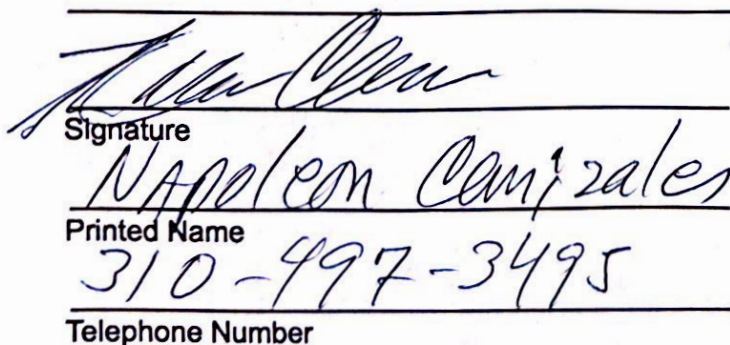 Signature
Napoleon Canizales
Printed Name
310-497-3495
Telephone Number